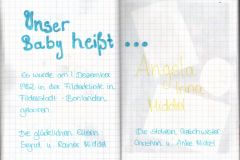 Unser
Baby heißt ...
Es wurde am 1. Dezember
1982 in der Filderklinik in
Filderstadt - Bonlanden
geboren.
Die glücklichen Eltern:
Sigrid u. Rainer Middel
Angela
Irina
Middel
Die stolzen Geschwister
und Anke Middel